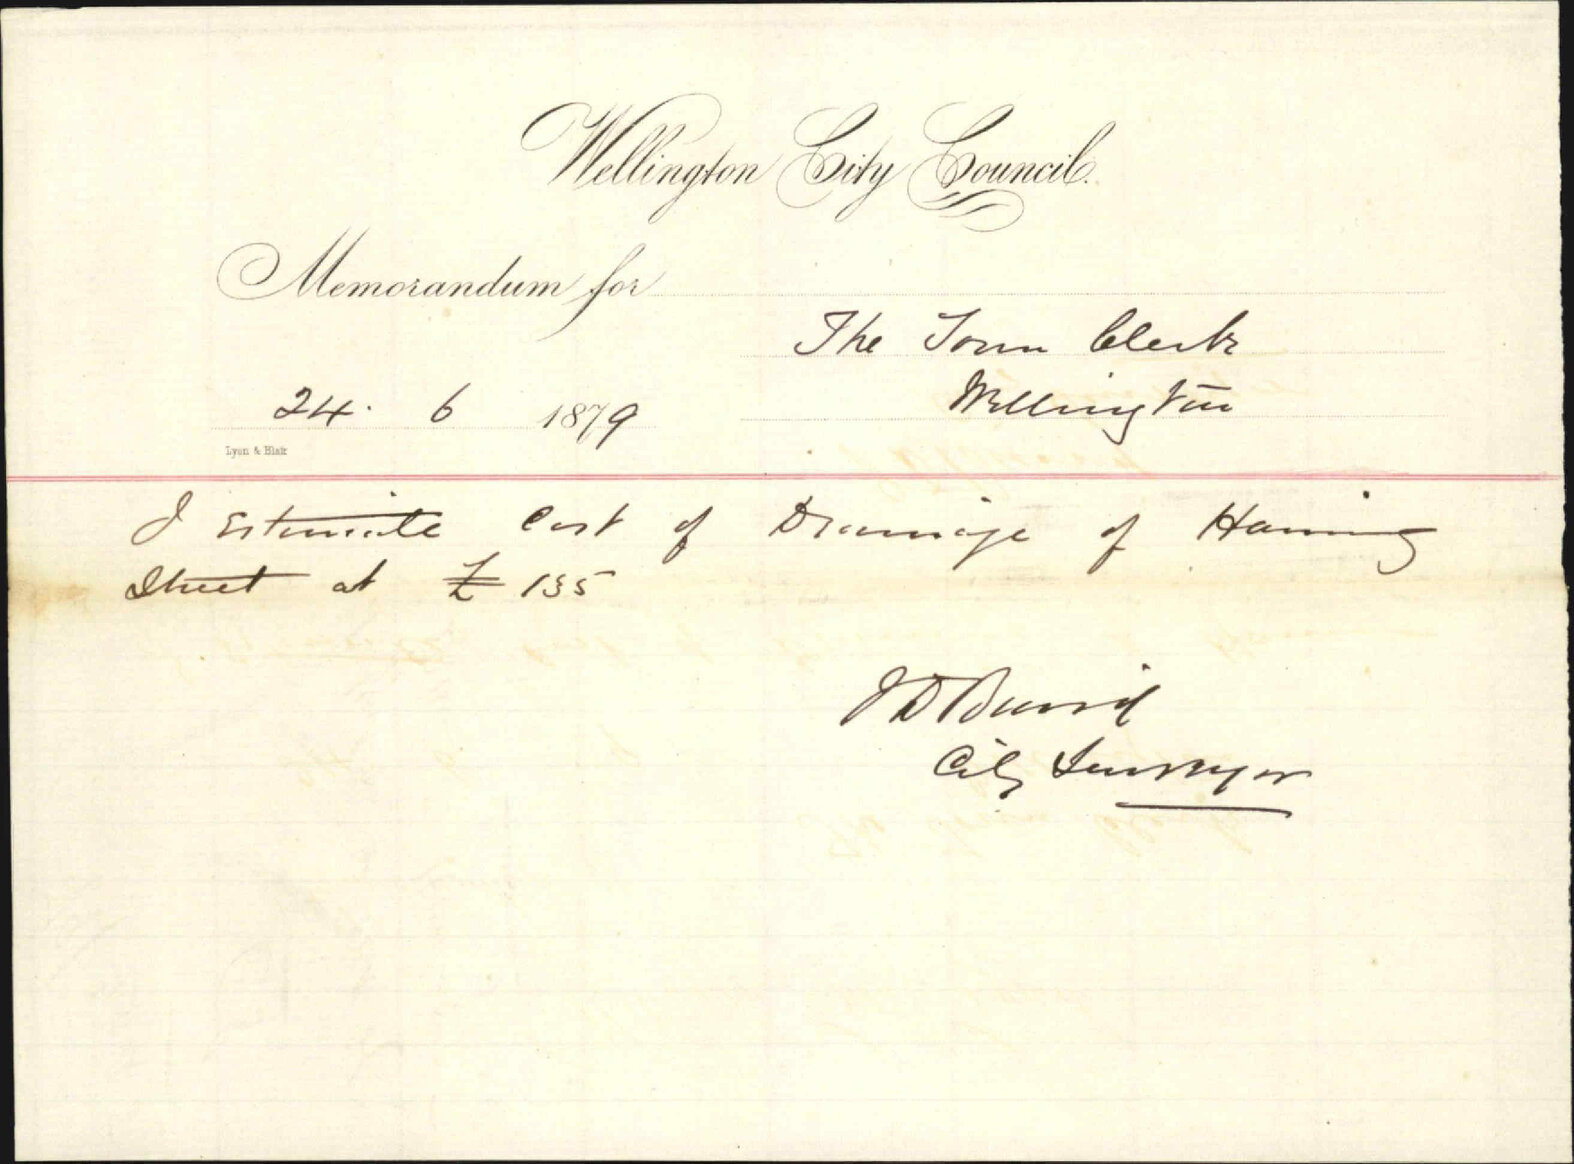 Wellington City Council.
Memorandum for
The Town Clerk
Wellington
24. 6 1879
Lyon & Blair
I Estimate Cost of Drainage of Haining
Street at £ 135
J D Baird
City Surveyor